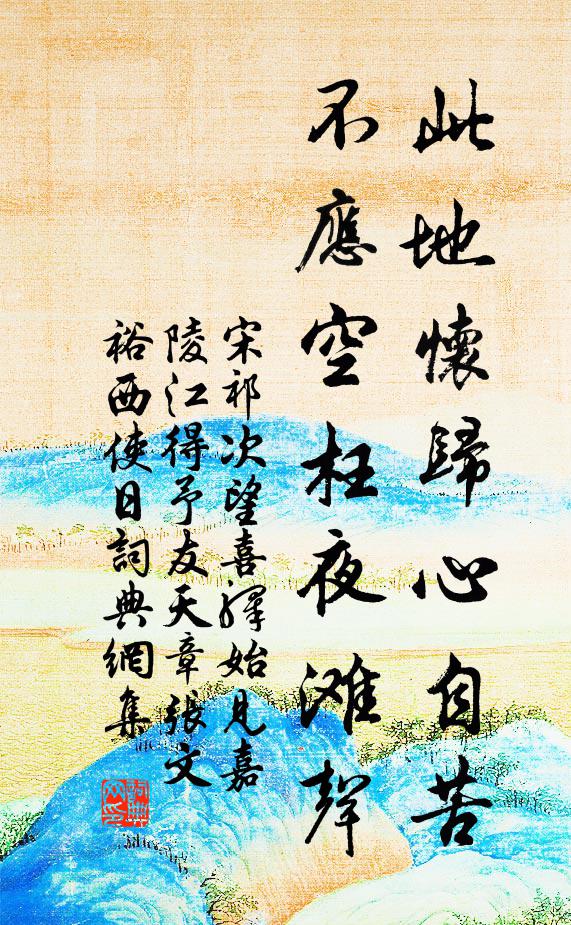 此地懷歸心自苦
不應空枉夜滩聲
宋祁次望喜驿始見嘉
陵江得予友天章張文
裕西使日詞典網集